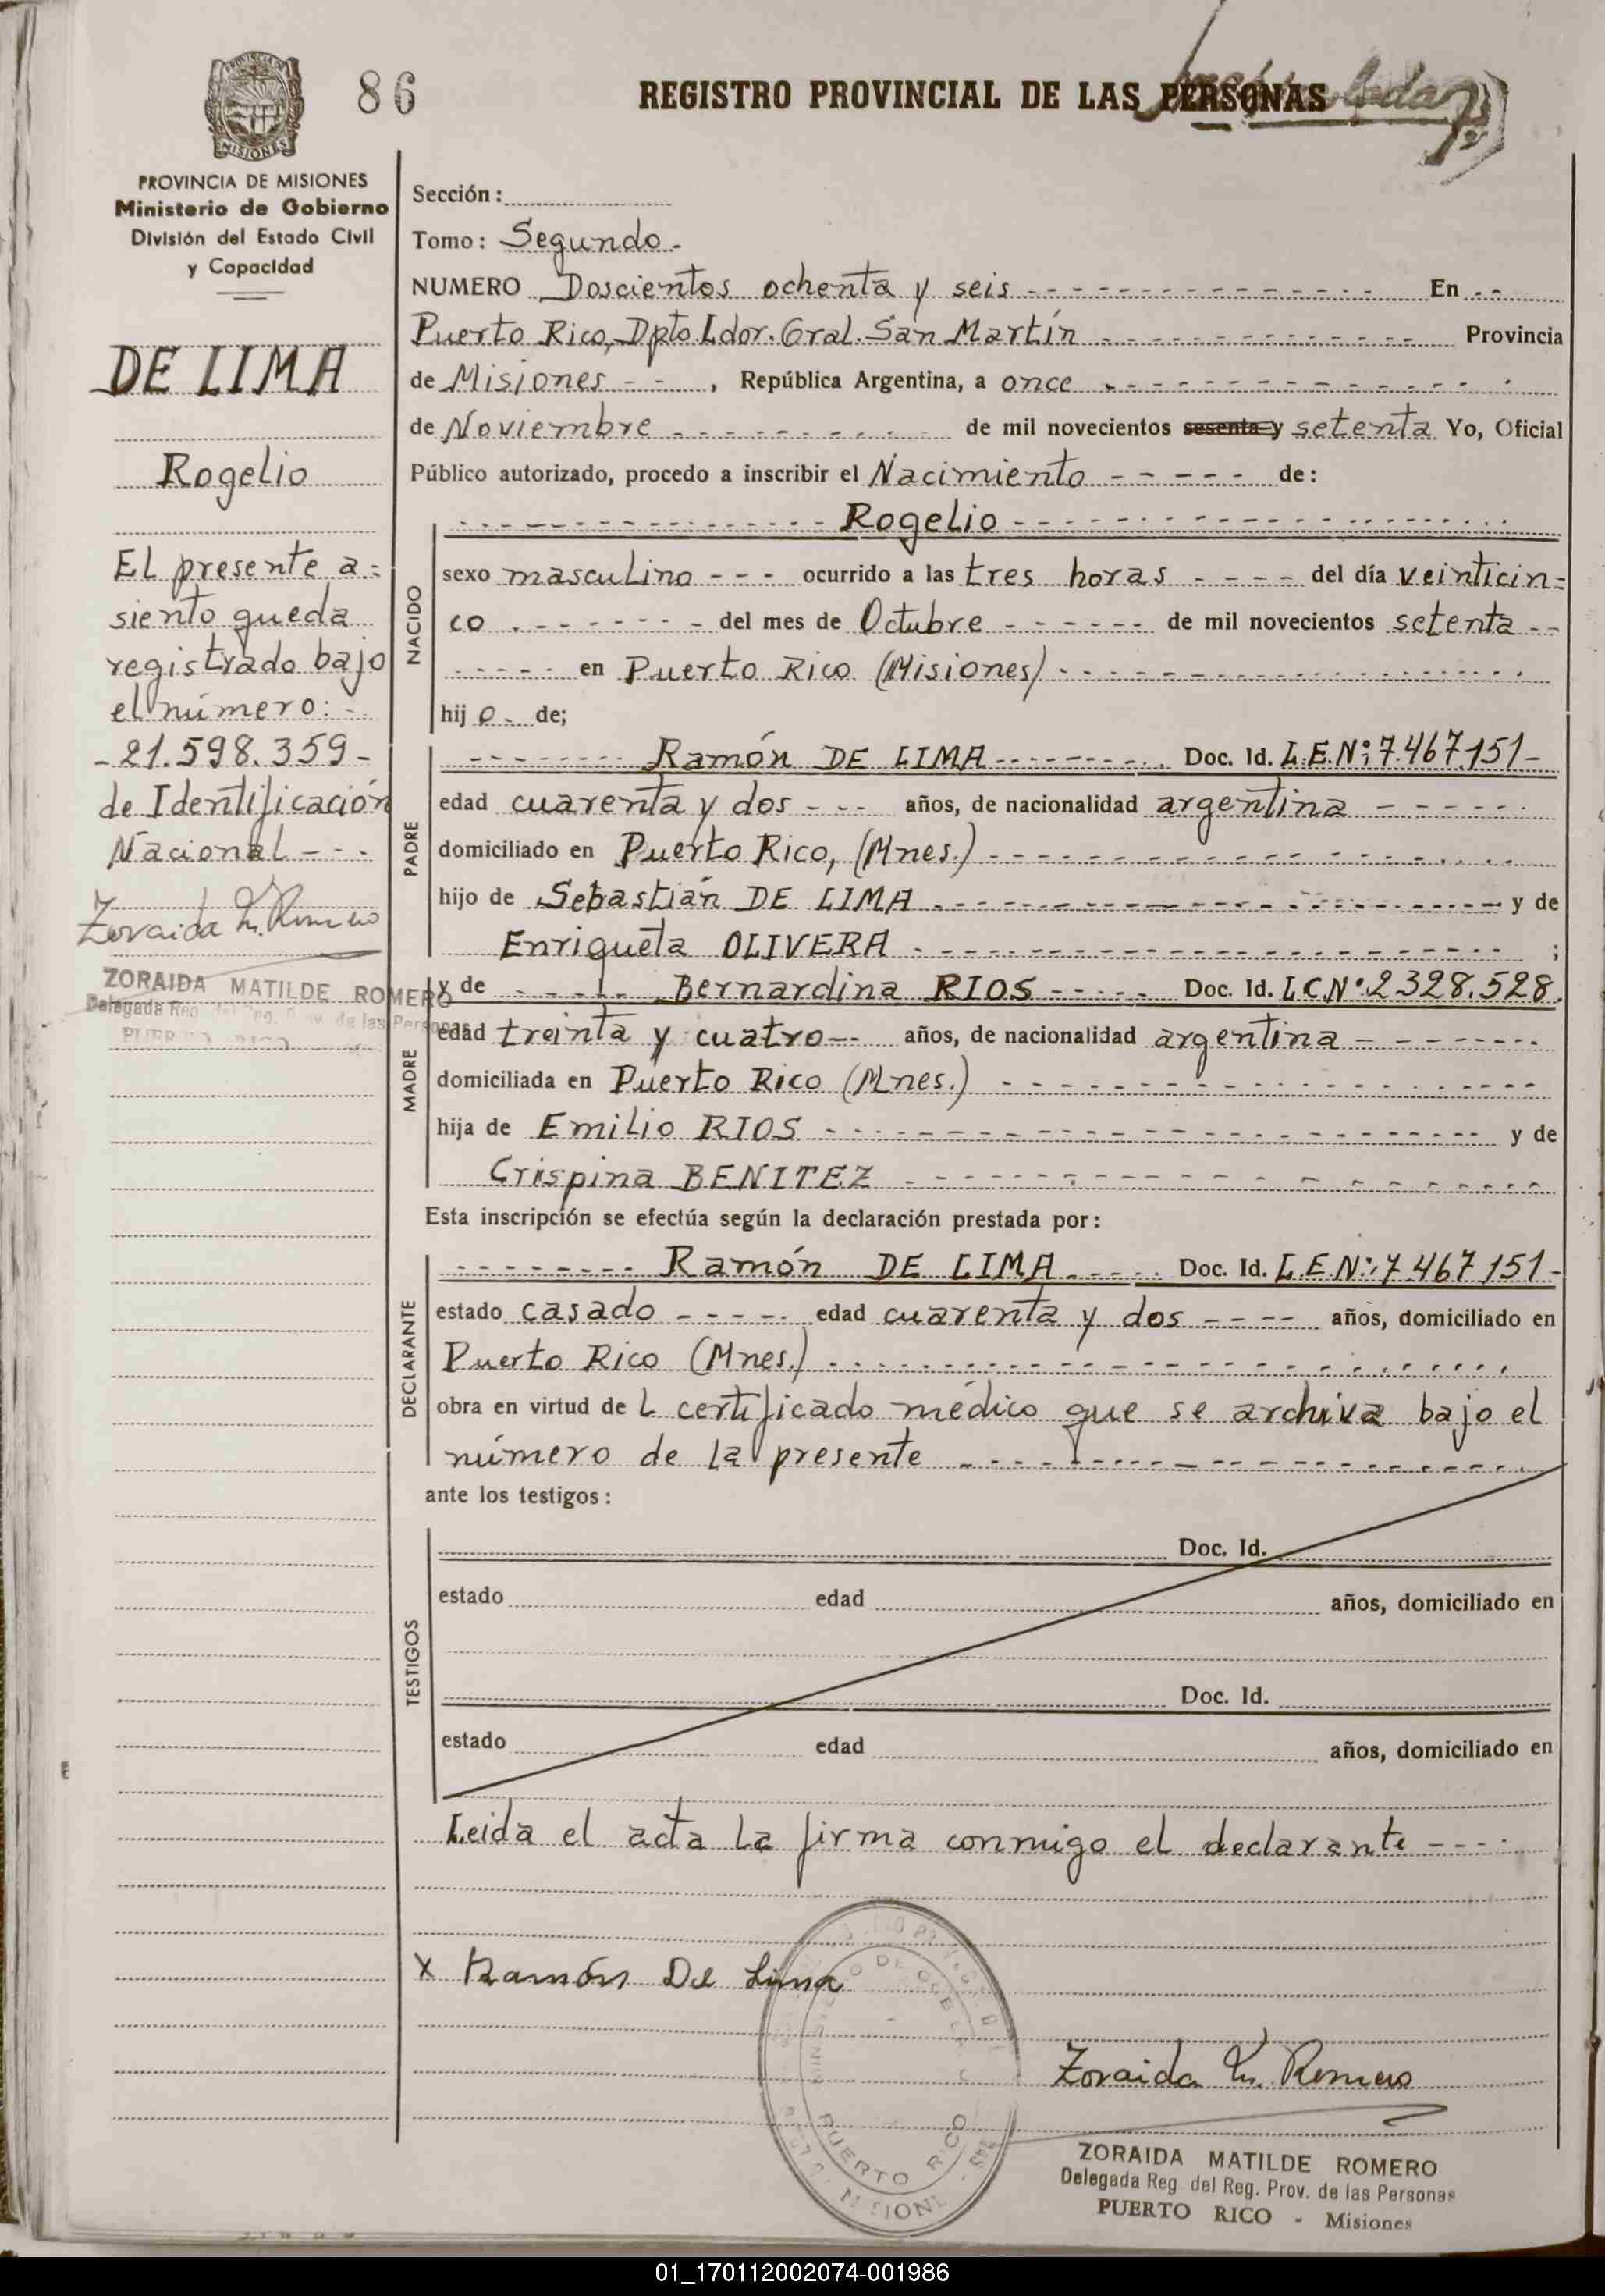 86
REGISTRO PROVINCIAL DE LAS PERSONAS
PROVINCIA DE MISIONES
MISIONES
PROVINCIA DE MISIONES
Ministerio de Gobierno
División del Estado Civil
y Capacidad
DE LIMA
Rogelio
El presente a=
siento queda
registrado bajo
el número: -
- 21.598.359 -
de Identificación
Nacional - - -
Zoraida M. Romero
ZORAIDA MATILDE ROMERO
Delegada Reg. del Reg. Prov. de las Personas
PUERTO RICO
Sección:
Tomo: Segundo -
NUMERO Doscientos ochenta y seis - - - En - -
Puerto Rico, Dpto. Ldor. Gral. San Martín - - - Provincia
de Misiones - - , República Argentina, a once - - -
de Noviembre - - - de mil novecientos sesenta y setenta Yo, Oficial
Público autorizado, procedo a inscribir el Nacimiento - - - - - de:
NACIDO
- - - Rogelio - - -
sexo masculino - - - ocurrido a las tres horas - - - - del día veinticin=
co - - - del mes de Octubre - - - de mil novecientos setenta - -
- - - - - en Puerto Rico (Misiones) - - -
hijo - de;
PADRE
- - - Ramón DE LIMA - - - Doc. Id. L.E.Nº: 7.467.151 -
edad cuarenta y dos - - - años, de nacionalidad argentina - - -
domiciliado en Puerto Rico, (Mnes.) - - -
hijo de Sebastián DE LIMA - - - y de
Enriqueta OLIVERA - - - ;
MADRE
y de - - - Bernardina RIOS - - - Doc. Id. L.C.Nº 2.328.528.
edad treinta y cuatro - - años, de nacionalidad argentina - - -
domiciliada en Puerto Rico (Mnes.) - - -
hija de Emilio RIOS - - - y de
Crispina BENITEZ - - -
Esta inscripción se efectúa según la declaración prestada por:
DECLARANTE
- - - Ramón DE LIMA - - - Doc. Id. L.E.Nº: 7.467.151 -
estado casado - - - edad cuarenta y dos - - - - años, domiciliado en
Puerto Rico (Mnes.) - - -
obra en virtud de L certificado médico que se archiva bajo el
número de la presente - - -
ante los testigos:
TESTIGOS
Doc. Id.
estado edad años, domiciliado en
Doc. Id.
estado edad años, domiciliado en
Leida el acta la firma conmigo el declarante - - - -
x Ramón De Lima
PUERTO RICO
Zoraida M. Romero
ZORAIDA MATILDE ROMERO
Delegada Reg. del Reg. Prov. de las Personas
PUERTO RICO - Misiones
01_170112002074-001986